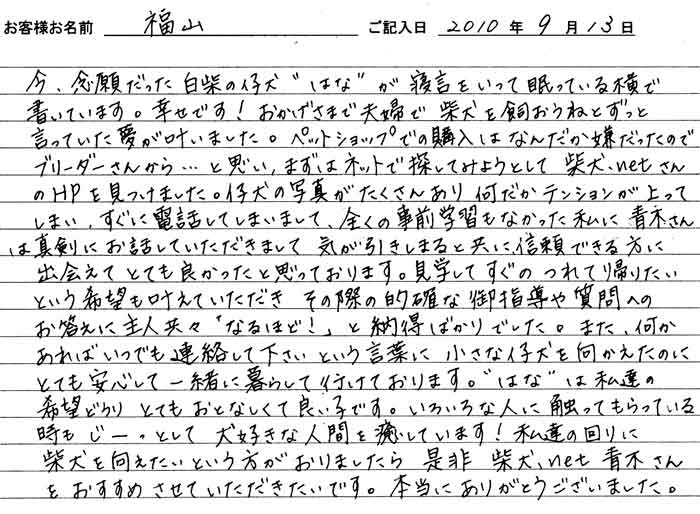 お客様お名前 福山 ご記入日 2010 年 9 月 13 日
今、念願だった白柴の仔犬"はな"が寝言をいって眠っている横で
書いています。幸せです！おかげさまで夫婦で柴犬を飼おうねとずっと
言っていた夢が叶いました。ペットショップでの購入はなんだか嫌だったので
ブリーダーさんから…と思い、まずはネットで探してみようとして柴犬.netさん
のHPを見つけました。仔犬の写真がたくさんあり何だかテンションが上って
しまい、すぐに電話してしまいまして、全くの事前学習もなかった私に青木さん
は真剣にお話していただきまして気が引きしまると共に、信頼できる方に
出会えてとても良かったと思っております。見学してすぐのつれて帰りたい
という希望も叶えていただき その際の的確な御指導や質問への
お答えに主人共々「なるほど！」と納得ばかりでした。また、何か
あればいつでも連絡して下さいという言葉に小さな仔犬を向かえたのに
とても安心して一緒に暮らして行けております。"はな"は私達の
希望どうりとてもおとなしくて良い子です。いろいろな人に触ってもらっている
時もじーっとして犬好きな人間を癒しています！私達の回りに
柴犬を向えたいという方がおりましたら是非柴犬.net青木さん
をおすすめさせていただきたいです。本当にありがとうございました。